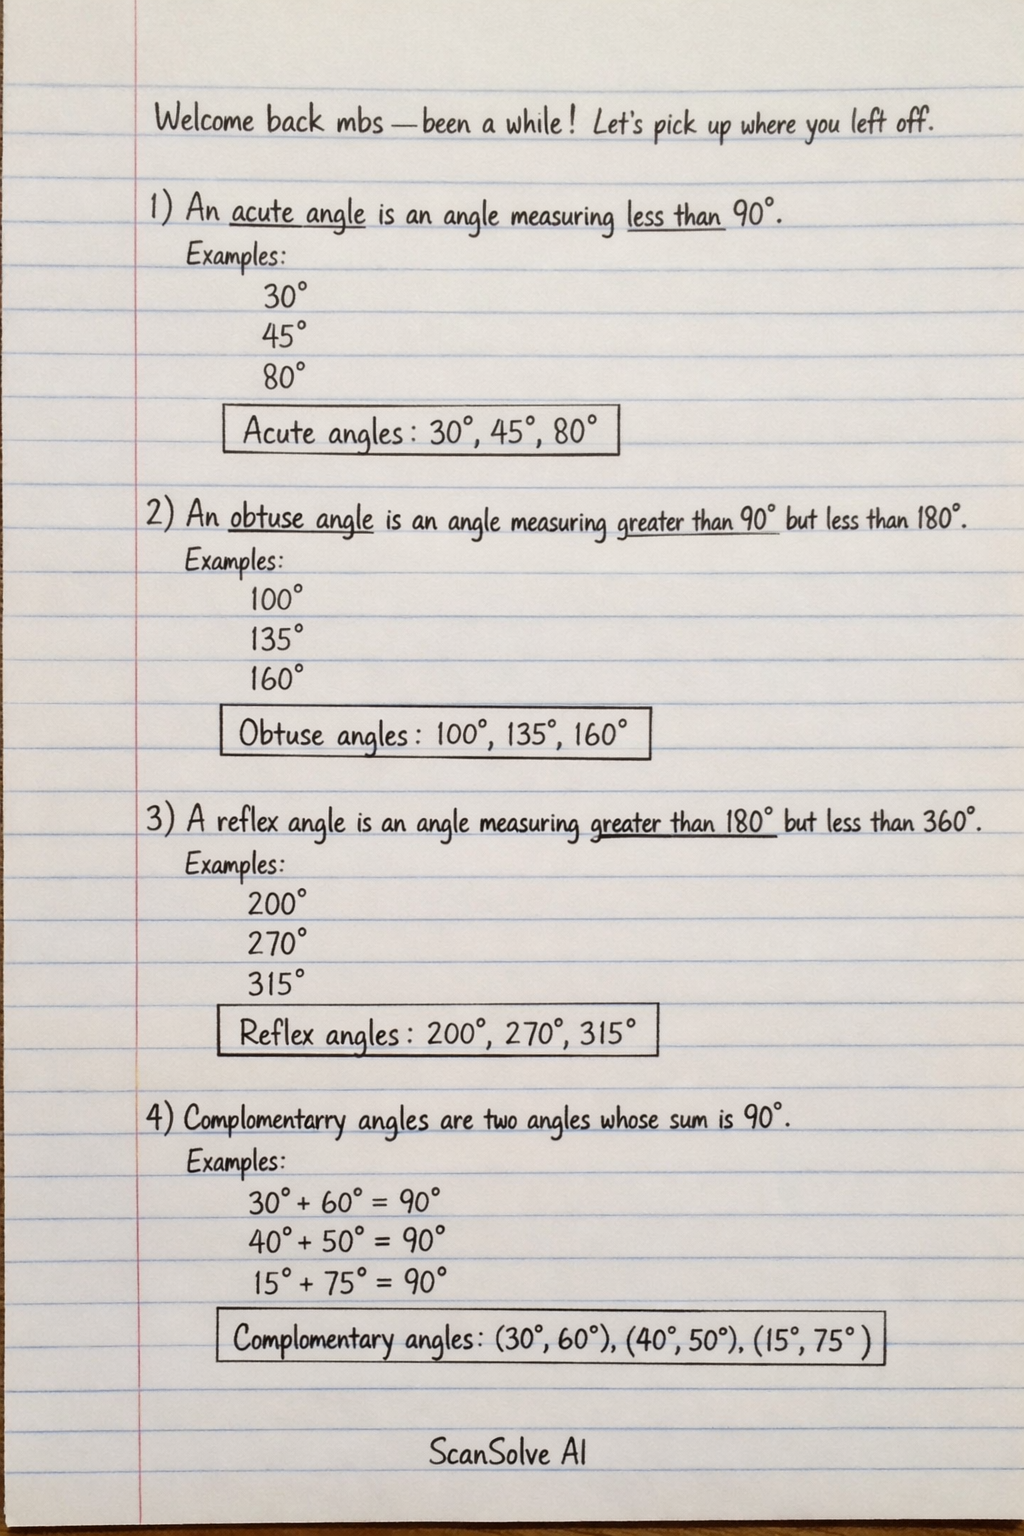 Welcome back mbs — been a while! Let's pick up where you left off.
1) An acute angle is an angle measuring less than 90°.
Examples:
30°
45°
80°
Acute angles: 30°, 45°, 80°
2) An obtuse angle is an angle measuring greater than 90° but less than 180°.
Examples:
100°
135°
160°
Obtuse angles: 100°, 135°, 160°
3) A reflex angle is an angle measuring greater than 180° but less than 360°.
Examples:
200°
270°
315°
Reflex angles: 200°, 270°, 315°
4) Complomentarry angles are two angles whose sum is 90°.
Examples:
30° + 60° = 90°
40° + 50° = 90°
15° + 75° = 90°
Complomentary angles: (30°, 60°), (40°, 50°), (15°, 75°)
ScanSolve AI